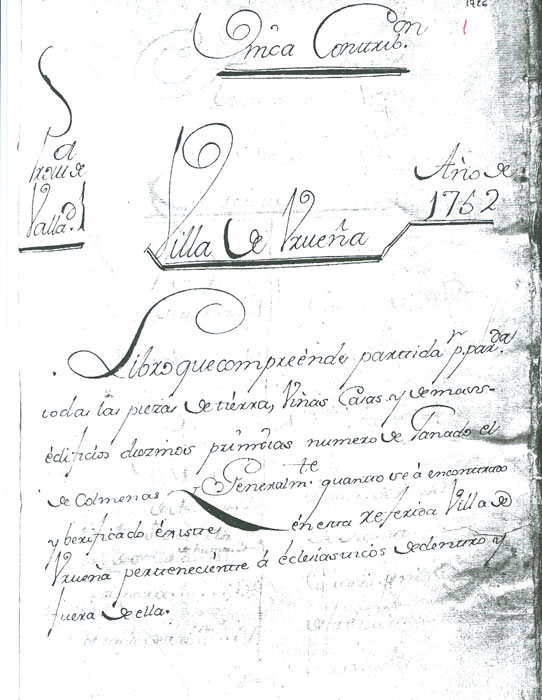 1726
1
Unica Contrib.on
Prov.a de
Vallad.d
Villa de Vrueña
Año de
1752
Libro que compreènde partida p.r par.da
todas las piezas de tiérra, Viñas Casas y demas
édificios diezmos primizias numero de Ganado el
de Colmenas y Generalm.te quanto se à encontrado
y berificado éxiste én esta referida Villa de
Vrueña perteneciénte á éclesiasticos de dentro y
fuera de ella.